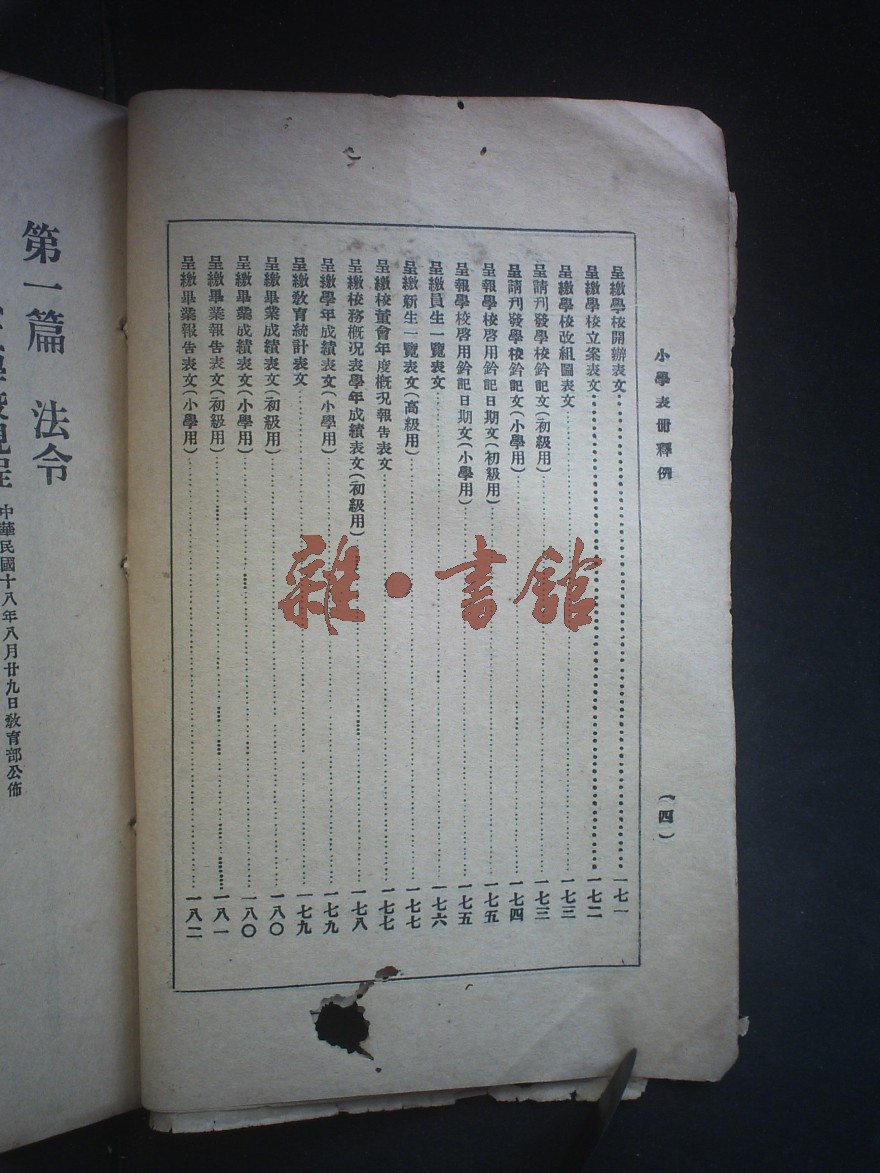 小學表冊釋例
(四)
呈繳學校開辦表文……一七一
呈繳學校立案表文……一七二
呈繳學校改組圖表文……一七三
呈請刊發學校鈐記文(初級用)……一七三
呈請刊發學校鈐記文(小學用)……一七四
呈報學校啓用鈐記日期文(初級用)……一七五
呈報學校啓用鈐記日期文(小學用)……一七五
呈繳員生一覽表文……一七六
呈繳新生一覽表文(高級用)……一七七
呈繳校董會年度概況報告表文……一七七
呈繳校務概況表學年成績表文(初級用)……一七八
呈繳學年成績表文(小學用)……一七九
呈繳敎育統計表文……一七九
呈繳畢業成績表文(初級用)……一八〇
呈繳畢業成績表文(小學用)……一八〇
呈繳畢業報告表文(初級用)……一八一
呈繳畢業報告表文(小學用)……一八二
雜·書館
第一篇 法令
規程 中華民國十八年八月廿九日敎育部公佈